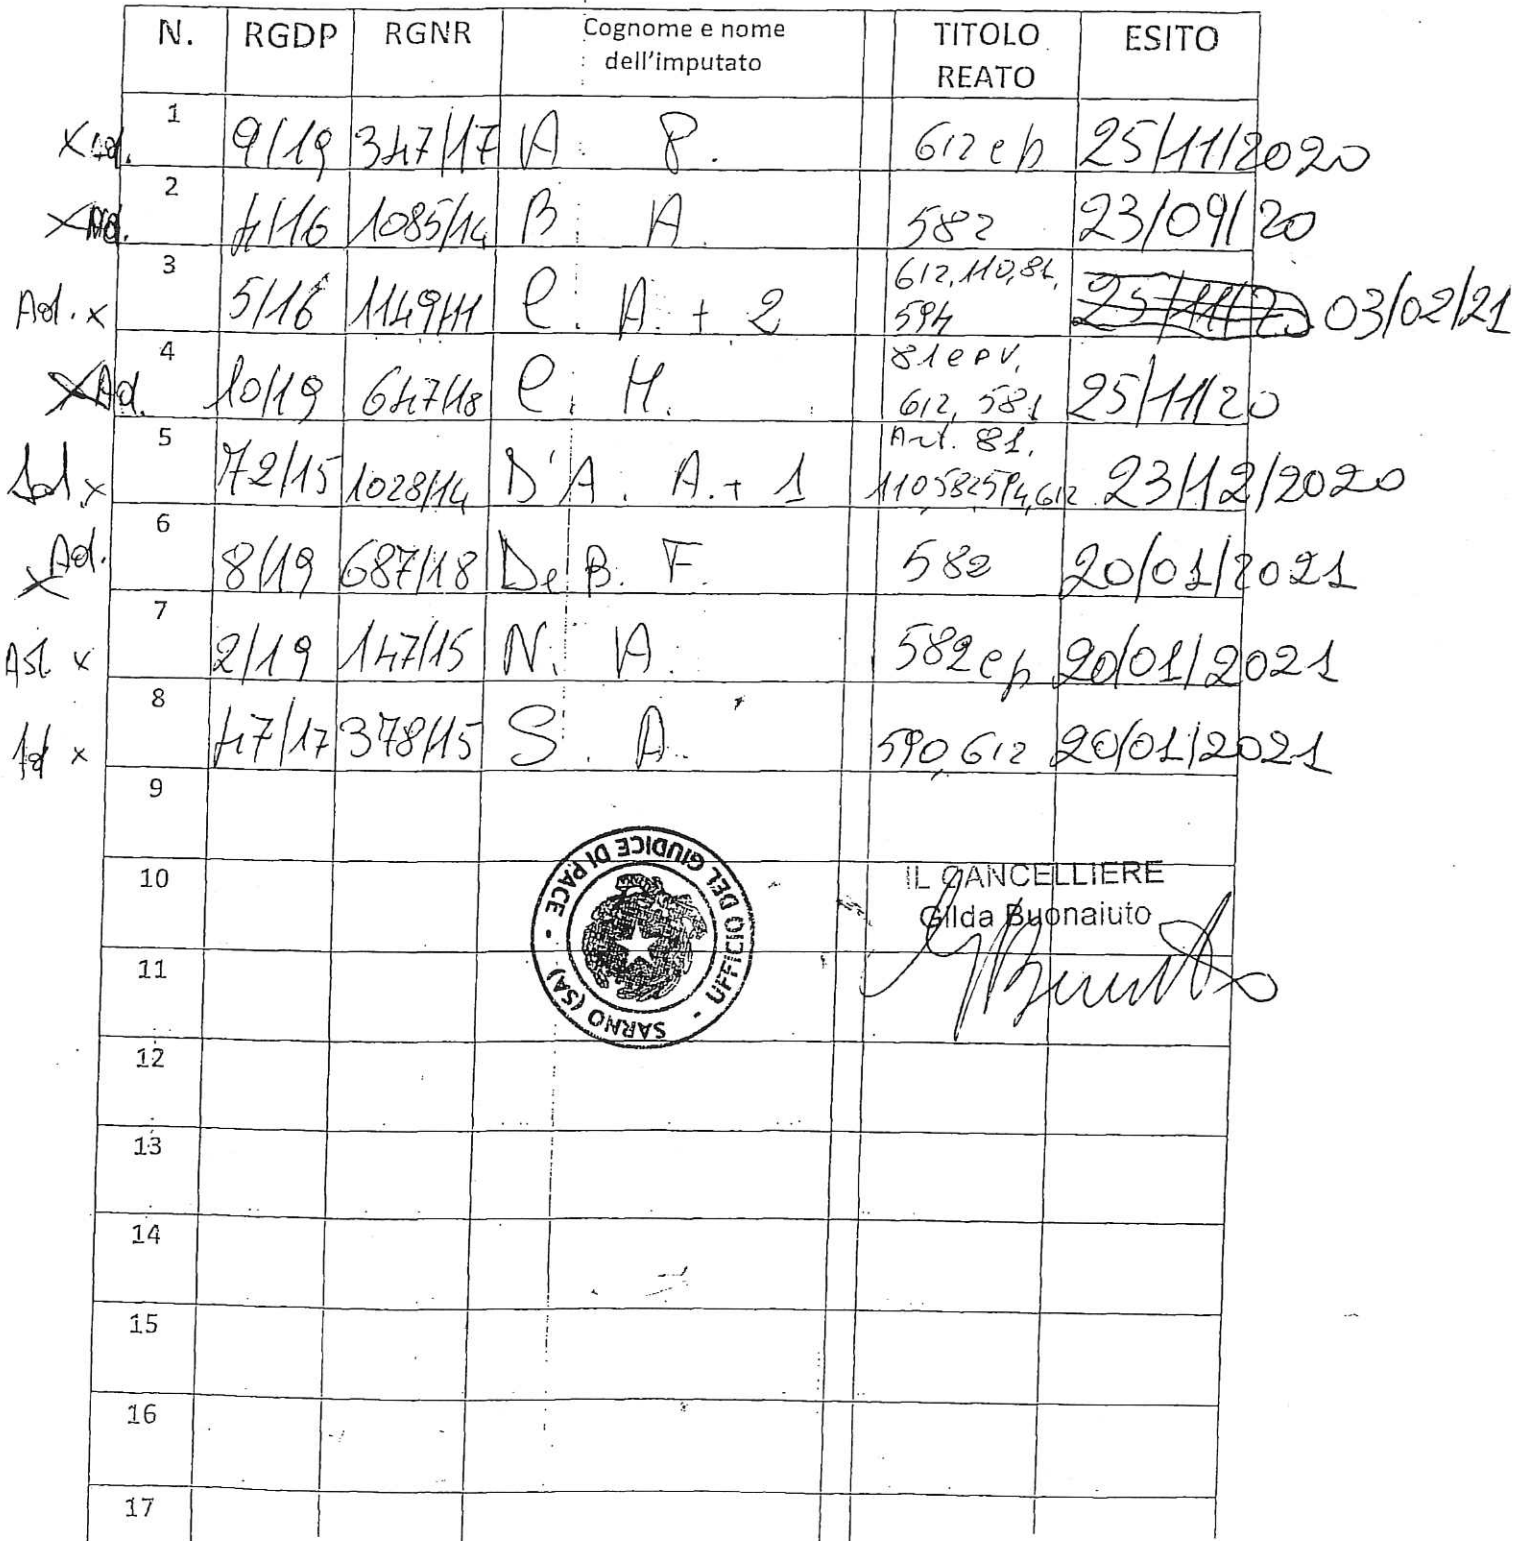 N. RGDP RGNR Cognome e nome dell'imputato TITOLO REATO ESITO
1 9/19 347/17 A. P. 612 cp 25/11/2020
2 4/16 1085/14 B. A. 582 23/09/20
Ad. x 3 5/16 1149/11 C. A. + 2 612, 110, 81, 594 25/11/20 03/02/21
x Ad. 4 10/19 647/18 C. M. 81 cpv, 612, 581 25/11/20
Ad x 5 72/15 1028/14 D'A. A. + 1 Art. 81, 110, 582, 594, 612 23/12/2020
x Ad. 6 8/19 687/18 De B. F. 582 20/01/2021
x 7 2/19 147/15 N. A. 582 cp 20/01/2021
Ad x 8 47/17 378/15 S. A. 590, 612 20/01/2021
9
10
11
12
13
14
15
16
17
UFFICIO DEL GIUDICE DI PACE - SARNO (SA) -
IL CANCELLIERE
Gilda Buonaiuto